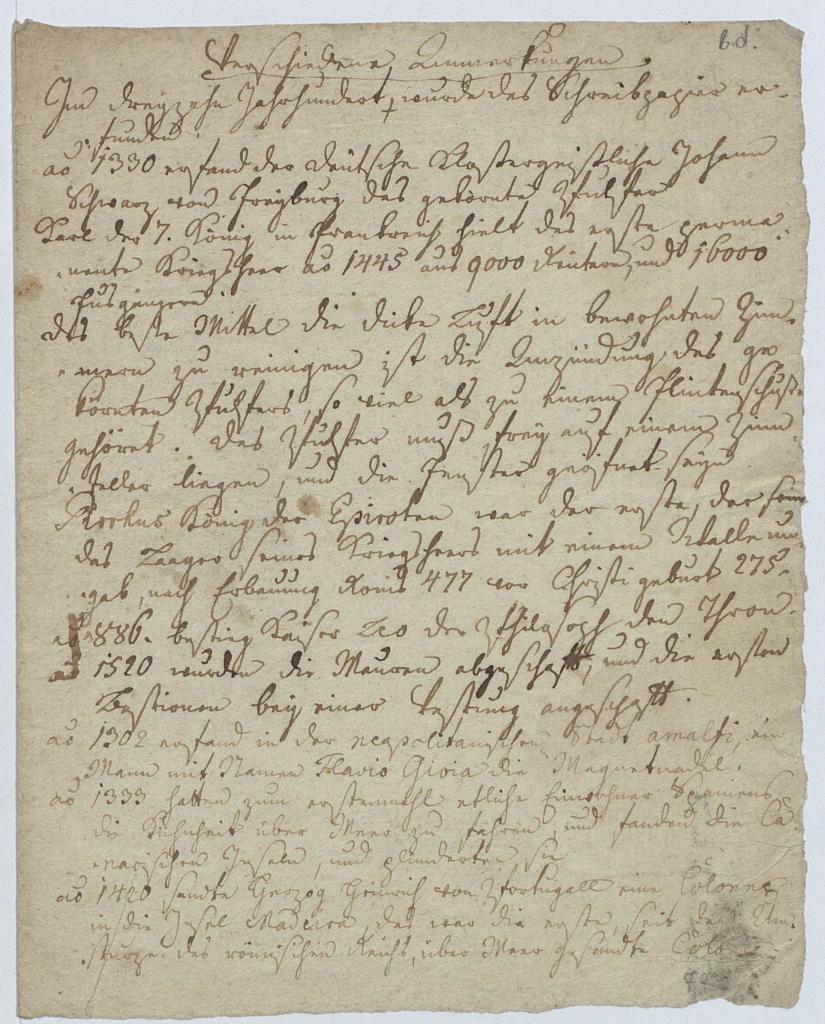 b.d.
Verschiedene Anmerkungen.
Im dreyzehn Jahrhundert, wurde das Schreibpapier er-
funden.
ao 1330 erfand der deutsche Klostergeistliche Johann
Schwarz von Freyburg das gekörnte Pulfer
Karl der 7. König in Frankreich hielt das erste perma-
nente Kriegsheer ao 1445 aus 9000 Reutern, und 16000
Fusgängern
das beste Mittel die dicke Luft in bewohnten Zim-
mern zu reinigen ist die Anzündung des ge
körnten Pulfers, so viel als zu einem Flintenschuß
gehöret. das Pulfer muß frey auf einem Zinn
teller liegen, und die Fenster geöfnet seyn
König der Epiroten war der erste, der
das Laager seines Kriegsheers mit einem Walle um-
gab, nach Erbauung Roms 477 vor Christi geburt 275.
886. bestieg Kaiser Leo der Philosoph den Thron.
ao 1520 wurden die Mauren abgeschafft, und die ersten
Bastionen bey einer Vestung angeschafft.
ao 1302 erfand in der neapolitanischen Stadt amalfi, ein
Mann mit Namen Flavio Gioia die Magnetnadel.
ao 1333 hatten zum erstenmahl etliche Einwohner Spaniens
die Kühnheit über Meer zu fahren, und fanden die Ca-
narischen Inseln, und plünderten sie
ao 1420 sandte Herzog Heinrich von Portugall eine Colonne
in die Insel Madeira, das war die erste, seit dem Um-
sturze des römischen Reichs, über Meer gesandte